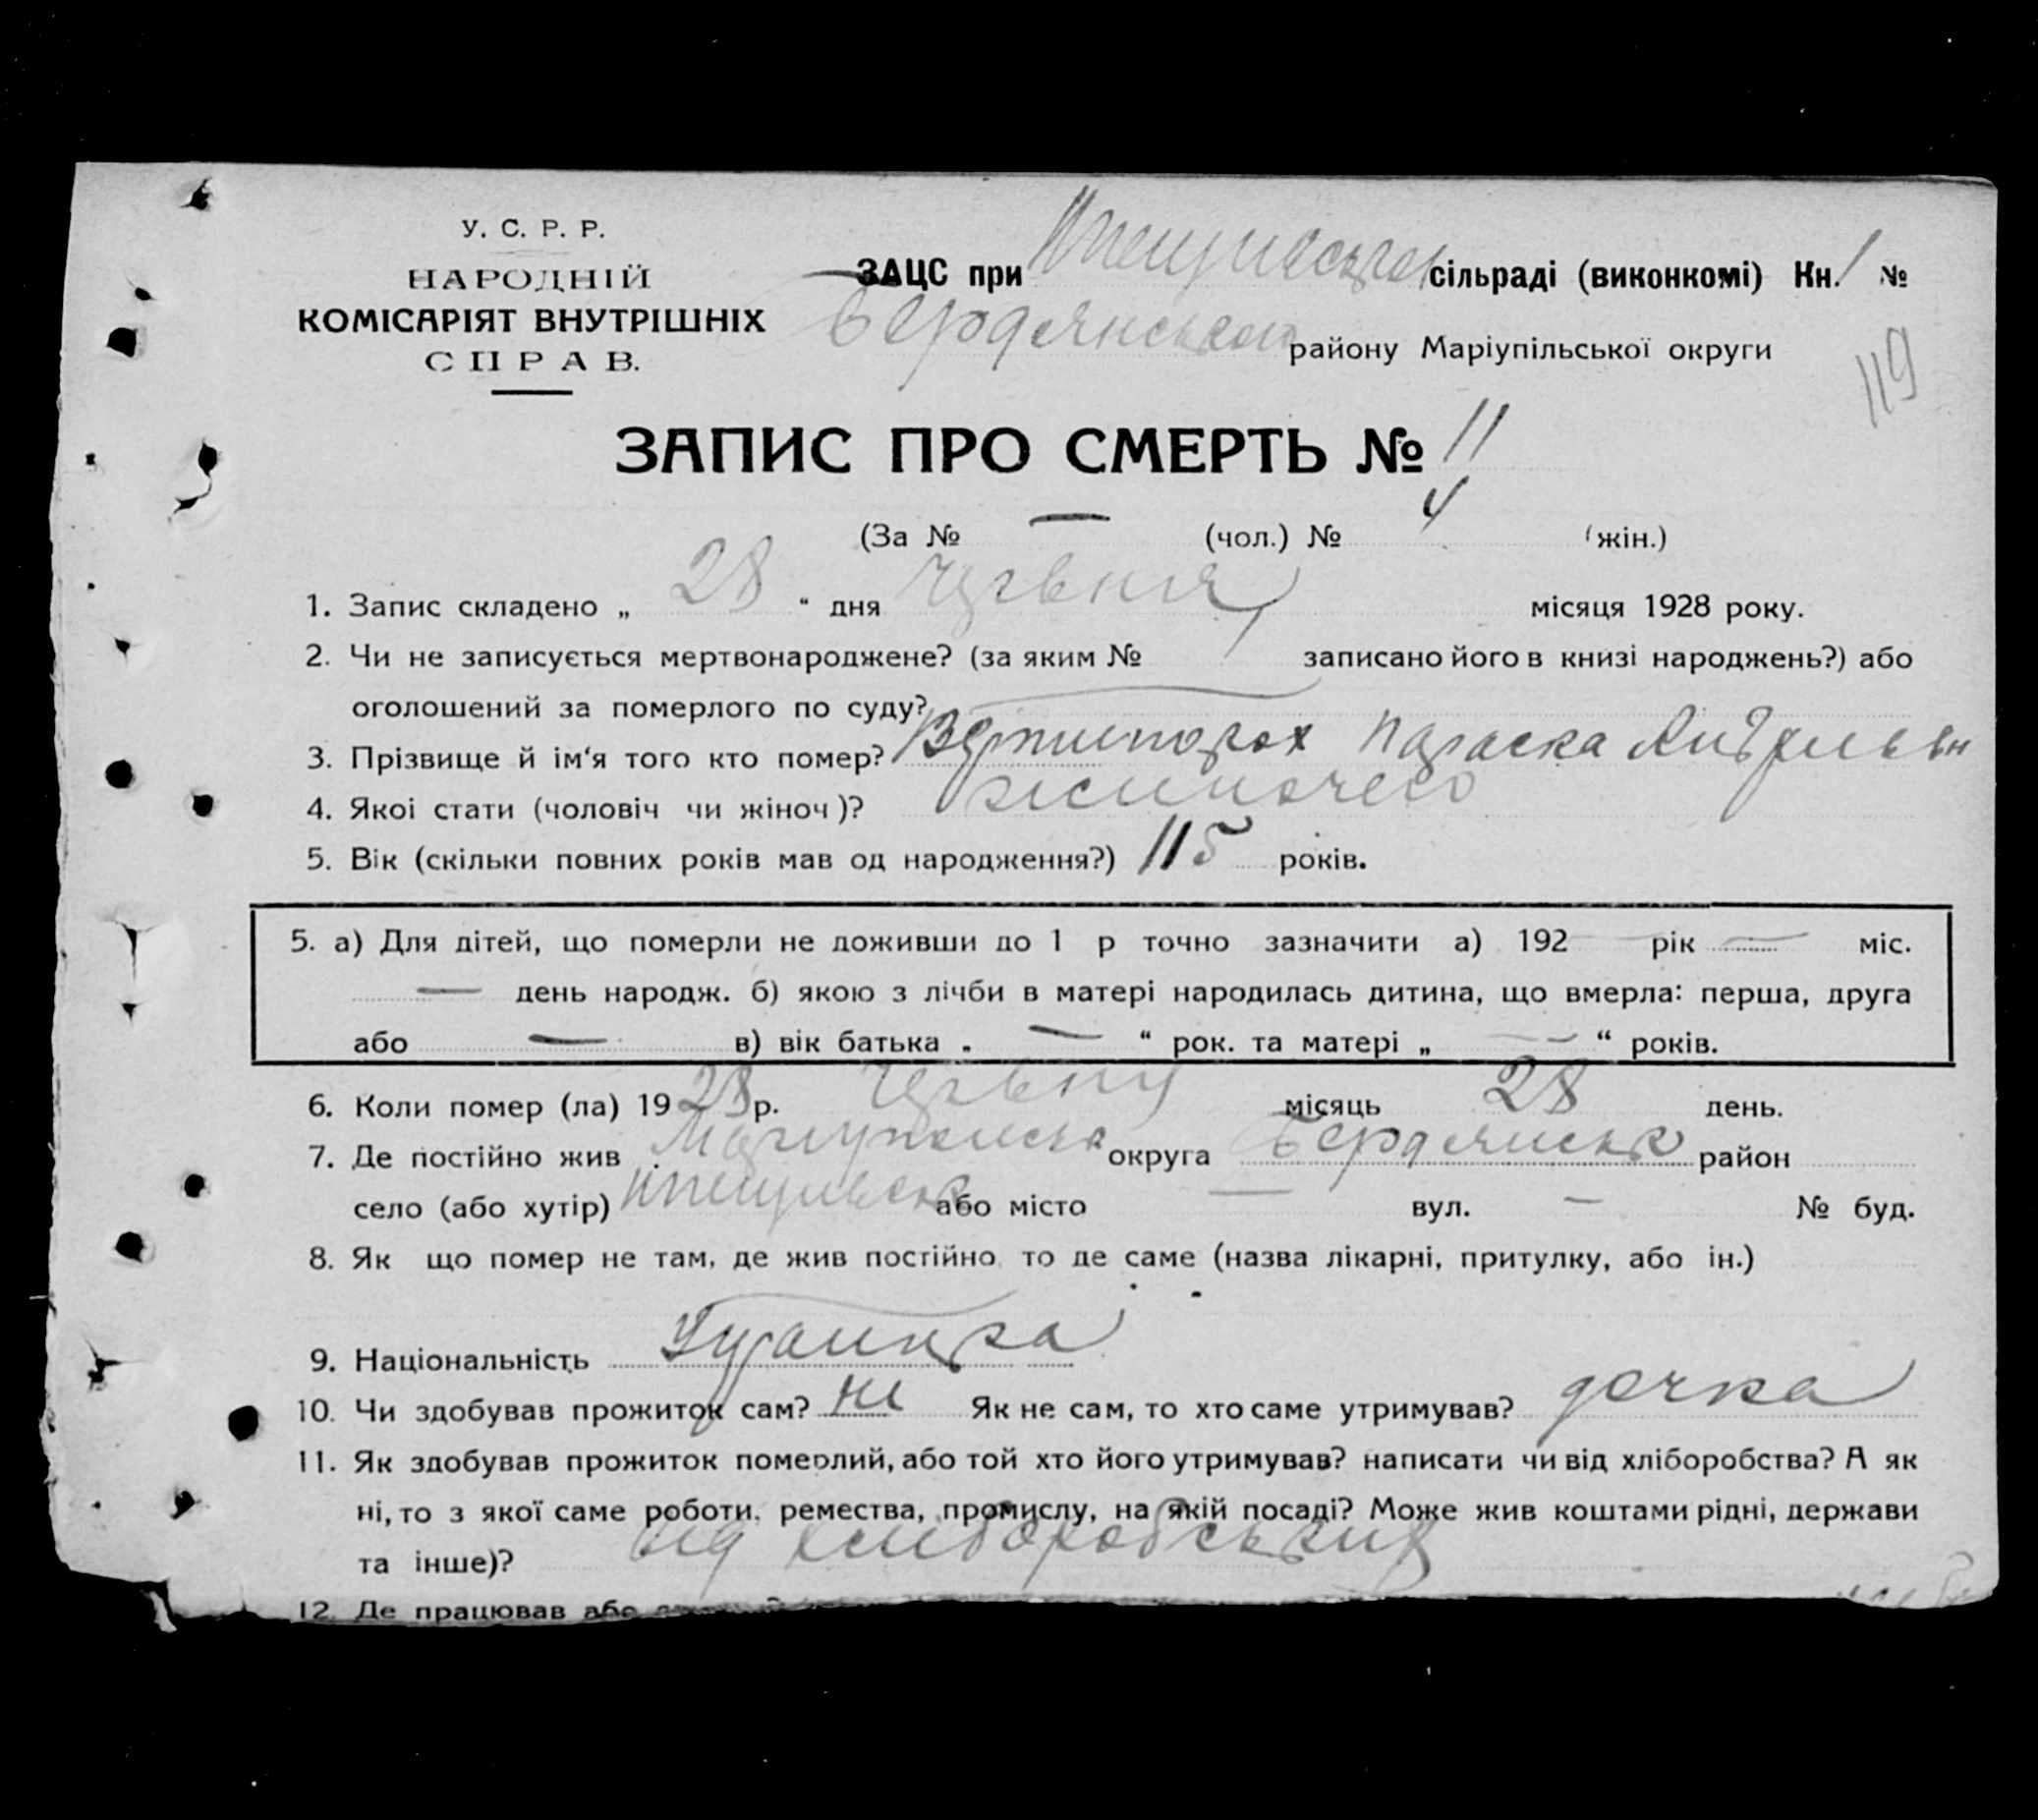 У. С. Р. Р.
НАРОДНІЙ
КОМІСАРІЯТ ВНУТРІШНІХ
СПРАВ.
ЗАЦС при сільраді (виконкомі) Кн. 1 №
Бердянського району Маріупільської округи
119
ЗАПИС ПРО СМЕРТЬ № 11
(За № — (чол.) № 4 (жін.)
1. Запис складено „ 28 “ дня Червня місяця 1928 року.
2. Чи не записується мертвонароджене? (за яким № записано його в книзі народжень?) або
оголошений за померлого по суду?
3. Прізвище й ім‘я того кто помер? Вертипорох Параска
4. Якоі стати (чоловіч чи жіноч)? жиночего
5. Вік (скільки повних років мав од народження?) 115 років.
5. а) Для дітей, що померли не доживши до 1 р точно зазначити а) 192 — рік — міс.
— день народж. б) якою з лічби в матері народилась дитина, що вмерла: перша, друга
або — в) вік батька „ — “ рок. та матері „ — “ років.
6. Коли помер (ла) 1928 р. Червня місяць 28 день.
7. Де постійно жив округа Бердянськ район
село (або хутір) або місто — вул. — № буд.
8. Як що помер не там, де жив постійно, то де саме (назва лікарні, притулку, або ін.)
9. Національність Украинка
10. Чи здобував прожиток сам? ни Як не сам, то хто саме утримував? дочка
11. Як здобував прожиток померлий, або той хто його утримував? написати чи від хліборобства? А як
ні, то з якої саме роботи, ремества, промислу, на якій посаді? Може жив коштами рідні, держави
та інше)? від
12. Де працював або